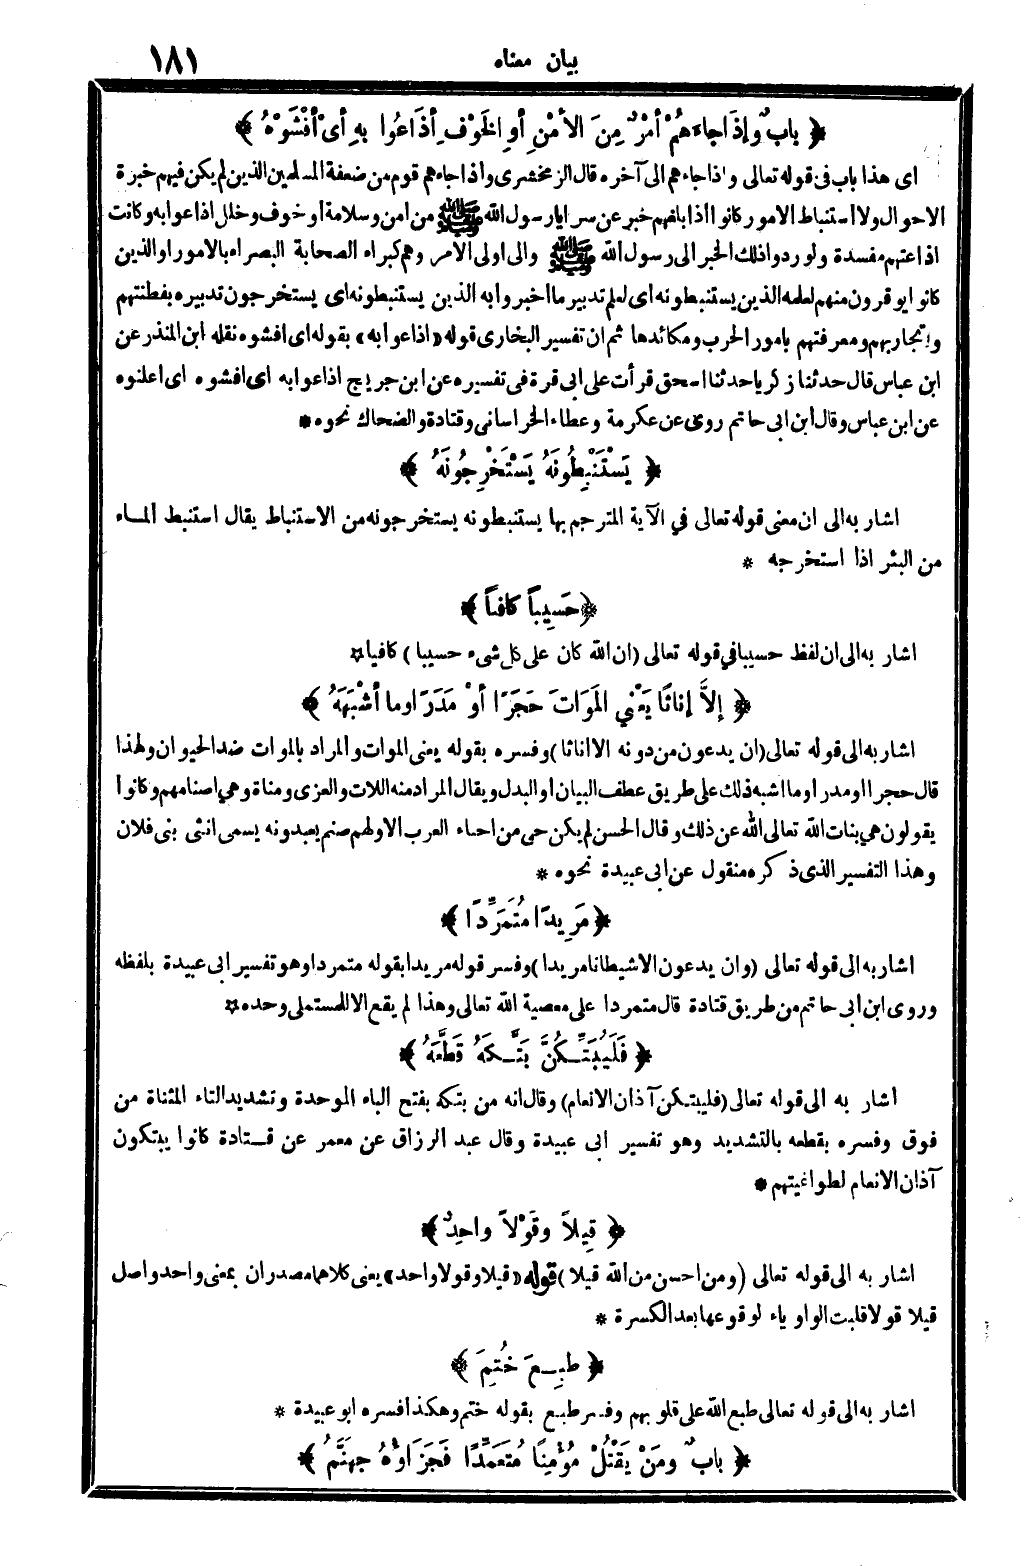 بيان معناه ١٨١
﴿ بابٌ وإذَا جاءَهُمْ أمْرٌ مِنَ الأمْنِ أوِ الخَوْفِ أذَاعُوا بهِ أىْ أفْشَوْهُ ﴾
اى هذا باب فى قوله تعالى واذا جاءهم الى آخره قال الزمخشرى واذا جاءهم قوم من ضعفة المسلمين الذين لم يكن فيهم خبرة
الاحوال ولا استنباط الامور كانوا اذا بلغهم خبر عن سرايا رسول الله ﷺ من امن وسلامة او خوف وخلل اذاعوا به وكانت
اذاعتهم مفسدة ولو ردوا ذلك الخبر الى رسول الله ﷺ والى اولى الامر وهم كبراء الصحابة البصراء بالامور او الذين
كانوا يؤمرون منهم لعلمه الذين يستنبطونه اى لعلم تدبير ما اخبروا به الذين يستنبطونه اى يستخرجون تدبيره بفطنتهم
وتجاربهم ومعرفتهم بامور الحرب ومكائدها ثم ان تفسير البخارى قوله «اذاعوا به» بقوله اى افشوه نقله ابن المنذر عن
ابن عباس قال حدثنا زكريا حدثنا اسحق قرأت على ابى قرة فى تفسيره عن ابن جريج اذاعوا به اى افشوه اى اعلنوه
عن ابن عباس وقال ابن ابى حاتم روى عن عكرمة وعطاء الخراسانى وقتادة والضحاك نحوه *
﴿ يَسْتَنْبِطُونَهُ يَسْتَخْرِجُونَهُ ﴾
اشار به الى ان معنى قوله تعالى في الآية المترجم بها يستنبطونه يستخرجونه من الاستنباط يقال استنبط المـاء
من البئر اذا استخرجه *
﴿ حَسِيباً كافياً ﴾
اشار به الى ان لفظ حسيبا في قوله تعالى (ان الله كان على كل شىء حسيبا) كافيا *
﴿ إلاَّ إناثًا يَعْني المَوَاتَ حَجَرًا أوْ مَدَرًا وما أشْبَهَهُ ﴾
اشار به الى قوله تعالى (ان يدعون من دونه الا اناثا) وفسره بقوله يعنى الموات والمراد بالموات ضد الحيوان ولهذا
قال حجرا او مدرا وما اشبه ذلك على طريق عطف البيان او البدل ويقال المراد منه اللات والعزى ومناة وهي اصنامهم وكانوا
يقولون هي بنات الله تعالى الله عن ذلك وقال الحسن لم يكن حى من احياء العرب الا ولهم صنم يعبدونه يسمى انثى بنى فلان
وهذا التفسير الذى ذكره منقول عن ابى عبيدة نحوه *
﴿ مَرِيدًا مُتَمَرِّدًا ﴾
اشار به الى قوله تعالى (وان يدعون الا شيطانا مريدا) وفسر قوله مريدا بقوله متمردا وهو تفسير ابى عبيدة بلفظه
وروى ابن ابى حاتم من طريق قتادة قال متمردا على معصية الله تعالى وهذا لم يقع الا للمستملى وحده *
﴿ فَلَيُبَتِّـكُنَّ بَتَّـكَهُ قَطَّعَهُ ﴾
اشار به الى قوله تعالى (فليبتكن آذان الانعام) وقال انه من بتكه بفتح الباء الموحدة وتشديد التاء المثناة من
فوق وفسره بقطعه بالتشديد وهو تفسير ابى عبيدة وقال عبد الرزاق عن معمر عن قـتادة كانوا يبتكون
آذان الانعام لطواغيتهم *
﴿ قِيلاً وقَوْلاً واحِدٌ ﴾
اشار به الى قوله تعالى (ومن احسن من الله قيلا) قوله «قيلا وقولا واحد» يعنى كلاهما مصدران بمعنى واحد واصل
قيلا قولا قلبت الواو ياء لوقوعها بعد الكسرة *
﴿ طبِـعَ خُتِمَ ﴾
اشار به الى قوله تعالى طبع الله على قلوبهم وفسر طبع بقوله ختم وهكذا فسره ابو عبيدة *
﴿ بابٌ ومَنْ يَقْتُلْ مُؤْمِنًا مُتَعَمِّدًا فَجَزَاؤُهُ جهنَّمُ ﴾